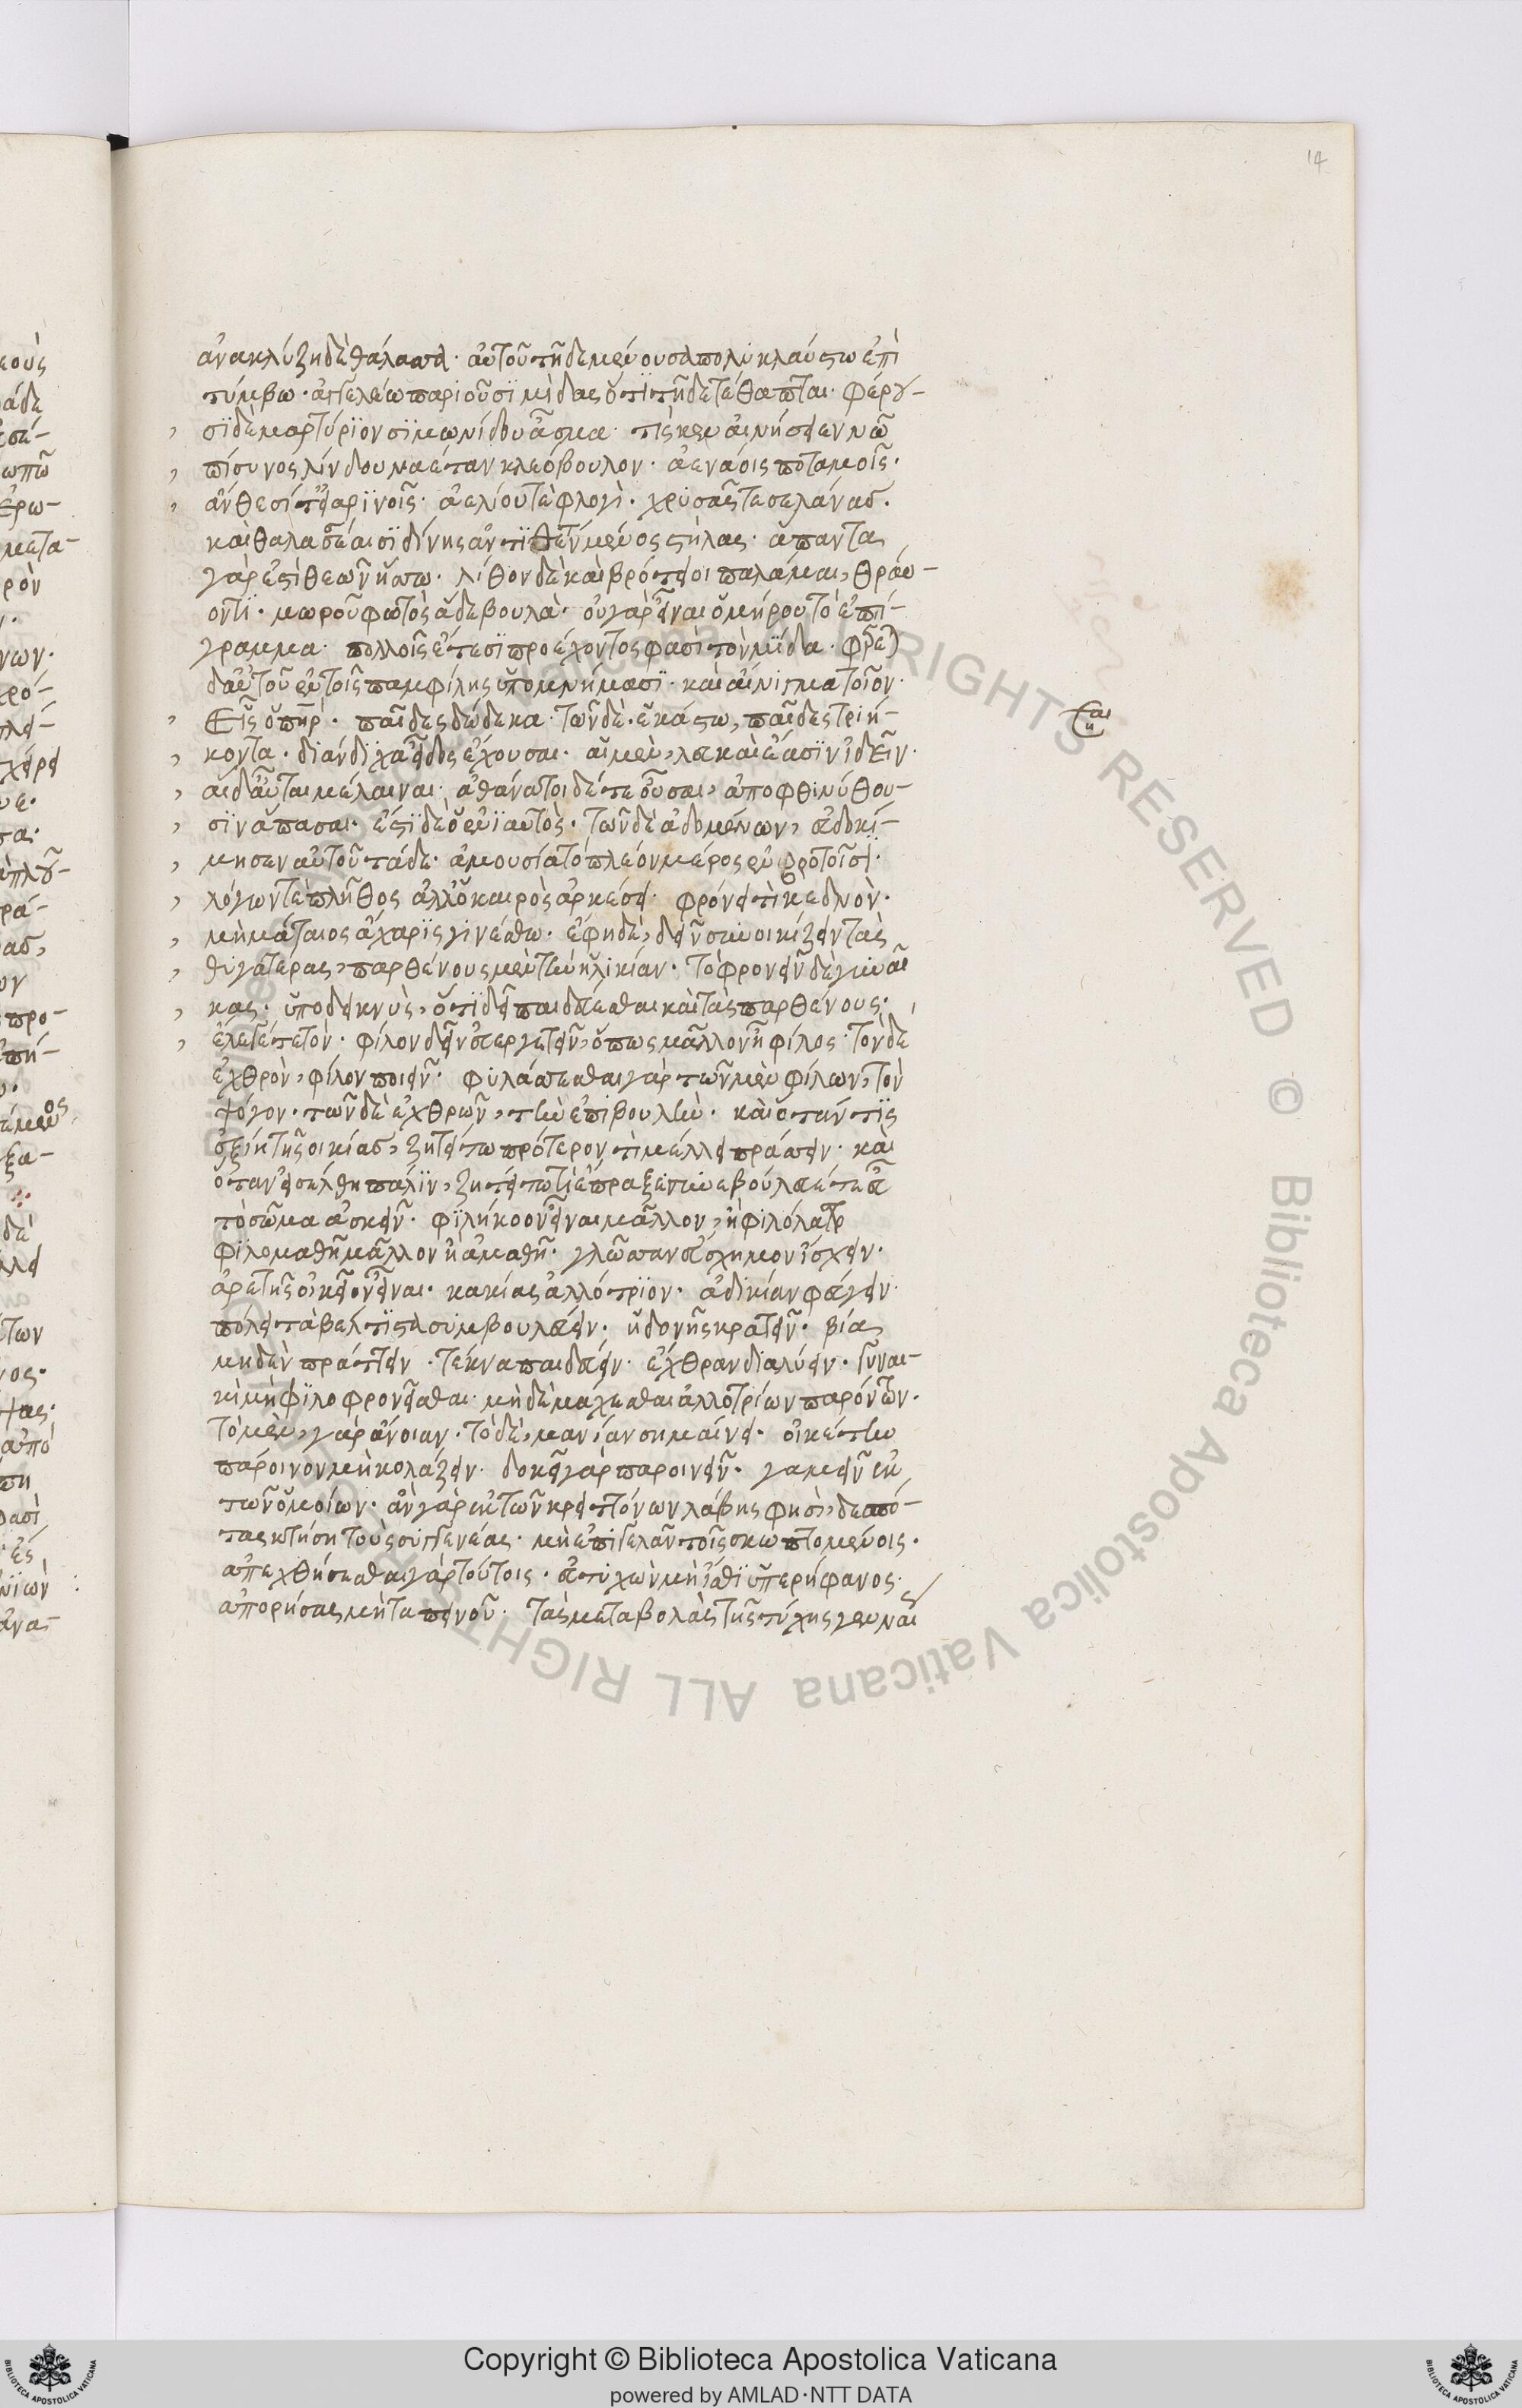 14
ἀνακλύζη δὲ θάλασσα· αὐτοῦ τῆδε μένουσα πολυκλαύστω ἐπὶ
τύμβω· ἀγγελέω παριοῦσι μίδας ὅτι τῆδε τέθαπται· φέρου-
σι δὲ μαρτύριον σιμωνίδου ᾆσμα· τίς κεν αἰνήσειεν νῶ
πίσυνος λίνδου ναέταν κλεόβουλον· ἀενάοις ποταμοῖς·
ἄνθεσί τ' εἀρινοῖς· ἀελίου τε φλογὶ· χρυσᾶς τε σελάνας·
καὶ θαλασσαίαισι δίνης ἀντιθέντα μένος στήλας· ἅπαντα
γάρ ἐστι θεῶν ἥσσω· λίθον δὲ καὶ βρότειοι παλάμαι, θραύ-
οντι· μωροῦ φωτὸς ἅδε βουλὰ· οὐ γὰρ εἶναι ὁμήρου τὸ ἐπί-
γραμμα· πολλοῖς ἔτεσι προέχοντος φασὶ τὸν μίδα· φέρεται
δ' αὐτοῦ ἐν τοῖς παμφίλης ὑπομνήμασι· καὶ αἴνιγμα τοῖον·
Εἷς ὁ πατήρ· παῖδες δώδεκα· τῶν δὲ ἑκάστω, παῖδες τριή-
κοντα· διάνδιχα εἶδος ἔχουσαι· αἱ μὲν, λευκαὶ ἔασιν ἰδεῖν·
αἱ δ' αὖτε μέλαιναι· ἀθάνατοι δέ τε οὖσαι, ἀποφθινύθου-
σιν ἅπασαι· ἔστι δὲ ὁ ἐνιαυτὸς· τῶν δὲ ἀδομένων, εὐδοκί-
μησεν αὐτοῦ τάδε· ἀμουσία τὸ πλέον μέρος ἐν βροτοῖσι·
λόγων τε πλῆθος ἀλλ' ὁ καιρὸς ἀρκέσει· φρόνει τι κεδνὸν·
μὴ μάταιος ἄχαρις γινέσθω· ἔφη δὲ, δεῖν συνοικίζειν τὰς
θυγατέρας, παρθένους μὲν τὴν ἡλικίαν· τὸ φρονεῖν δὲ γυναῖ
κας· ὑποδεικνὺς, ὅτι δεῖ παιδεύεσθαι καὶ τὰς παρθένους·
ἔλεγέ τε τὸν· φίλον δεῖν εὐεργετεῖν, ὅπως μᾶλλον ἦ φίλος· τὸν δὲ
ἐχθρὸν, φίλον ποιεῖν· φυλάσσεσθαι γὰρ τῶν μὲν φίλων, τὸν
ψόγον· τῶν δὲ ἐχθρῶν, τὴν ἐπιβουλὴν· καὶ ὅταν τις
ἐξίη τῆς οἰκίας, ζητείτω πρότερον τί μέλλει πράσσειν· καὶ
ὅταν εἰσέλθη πάλιν, ζητείτω τί ἔπραξεν συνεβούλευέ τε εὖ
τὸ σῶμα ἀσκεῖν· φιλήκοον εἶναι μᾶλλον, ἢ φιλόλαλον
φιλομαθῆ μᾶλλον ἢ ἀμαθῆ· γλῶσσαν εὔσχημον ἴσχειν·
ἀρετῆς οἰκεῖον εἶναι· κακίας ἀλλότριον· ἀδικίαν φεύγειν·
πόλει τὰ βέλτιστα συμβουλεύειν· ἡδονῆς κρατεῖν· βία
μηδὲν πράττειν· τέκνα παιδεύειν· ἔχθραν διαλύειν· γυναι-
κὶ μὴ φιλοφρονεῖσθαι· μὴ δὲ μάχεσθαι ἀλλοτρίων παρόντων·
τὸ μὲν, γὰρ ἄνοιαν· τὸ δὲ, μανίαν σημαίνει· οἰκέτην
πάροινον μὴ κολάζειν· δοκεῖ γὰρ παροινεῖν· γαμεῖν ἐκ
τῶν ὁμοίων· ἂν γὰρ ἐκ τῶν κρειττόνων λάβης φησὶ, δεσπό-
τας κτήση τοὺς συγγενέας· μὴ ἐπιγελᾶν τοῖς σκωπτομένοις·
ἀπεχθήσεσθαι γὰρ τούτοις· εὐτυχῶν μὴ ἴσθι ὑπερήφανος·
ἀπορήσας μὴ ταπεινοῦ· τὰς μεταβολὰς τῆς τύχης γενναί
Copyright © Biblioteca Apostolica Vaticana
powered by AMLAD·NTT DATA